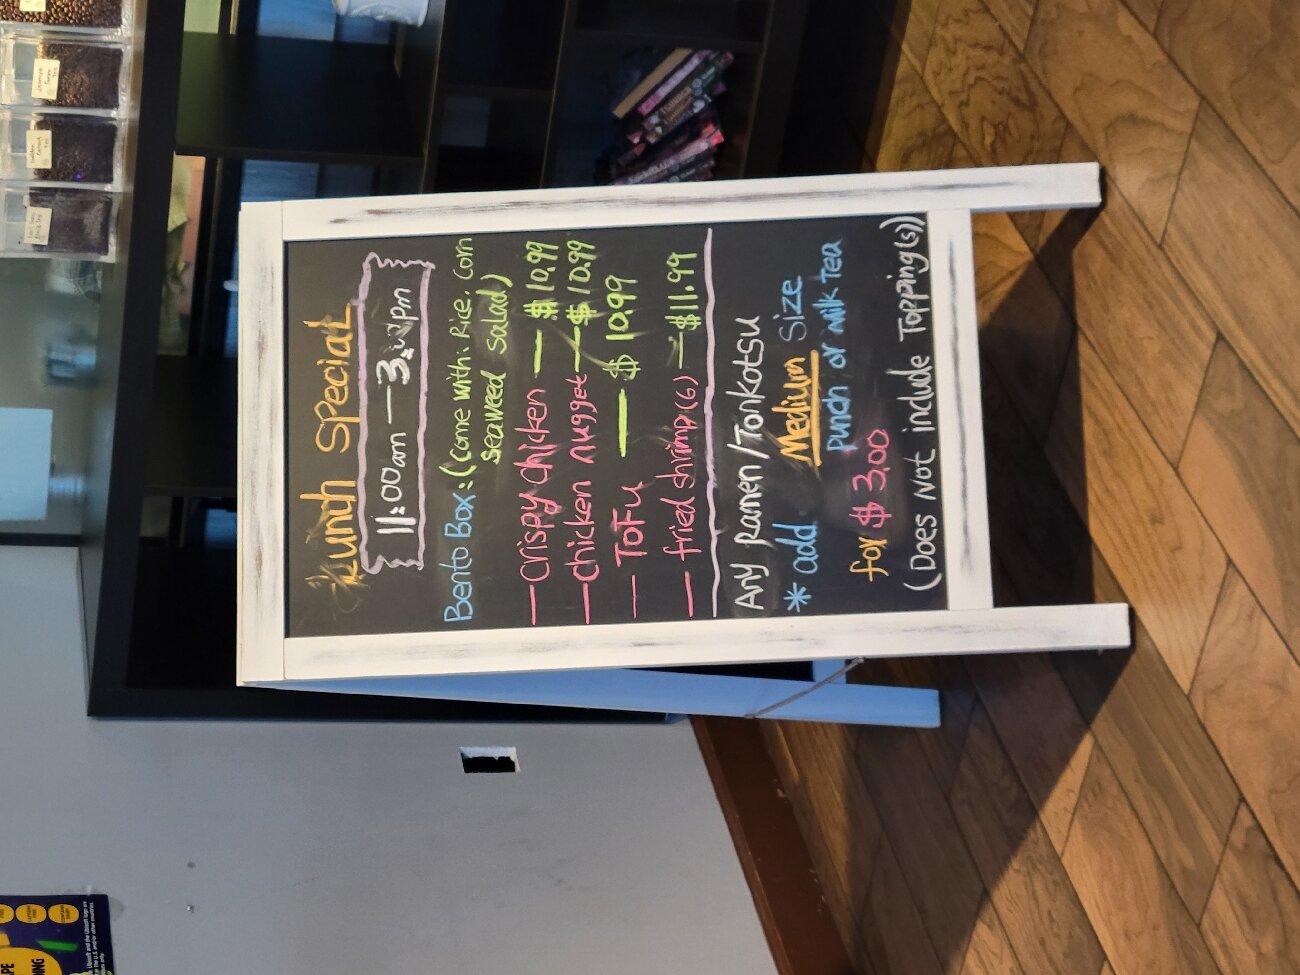 Lunch Special
11:00am — 3:00pm
Bento Box: (come with: Rice, Corn
seaweed salad)
— Crispy chicken — $10.99
— chicken nugget — $10.99
— ToFu — $10.99
— fried shrimp (6) — $11.99
Any Ramen/Tonkotsu
* add Medium Size
punch or Milk Tea
for $3.00
(Does Not include Topping(s))